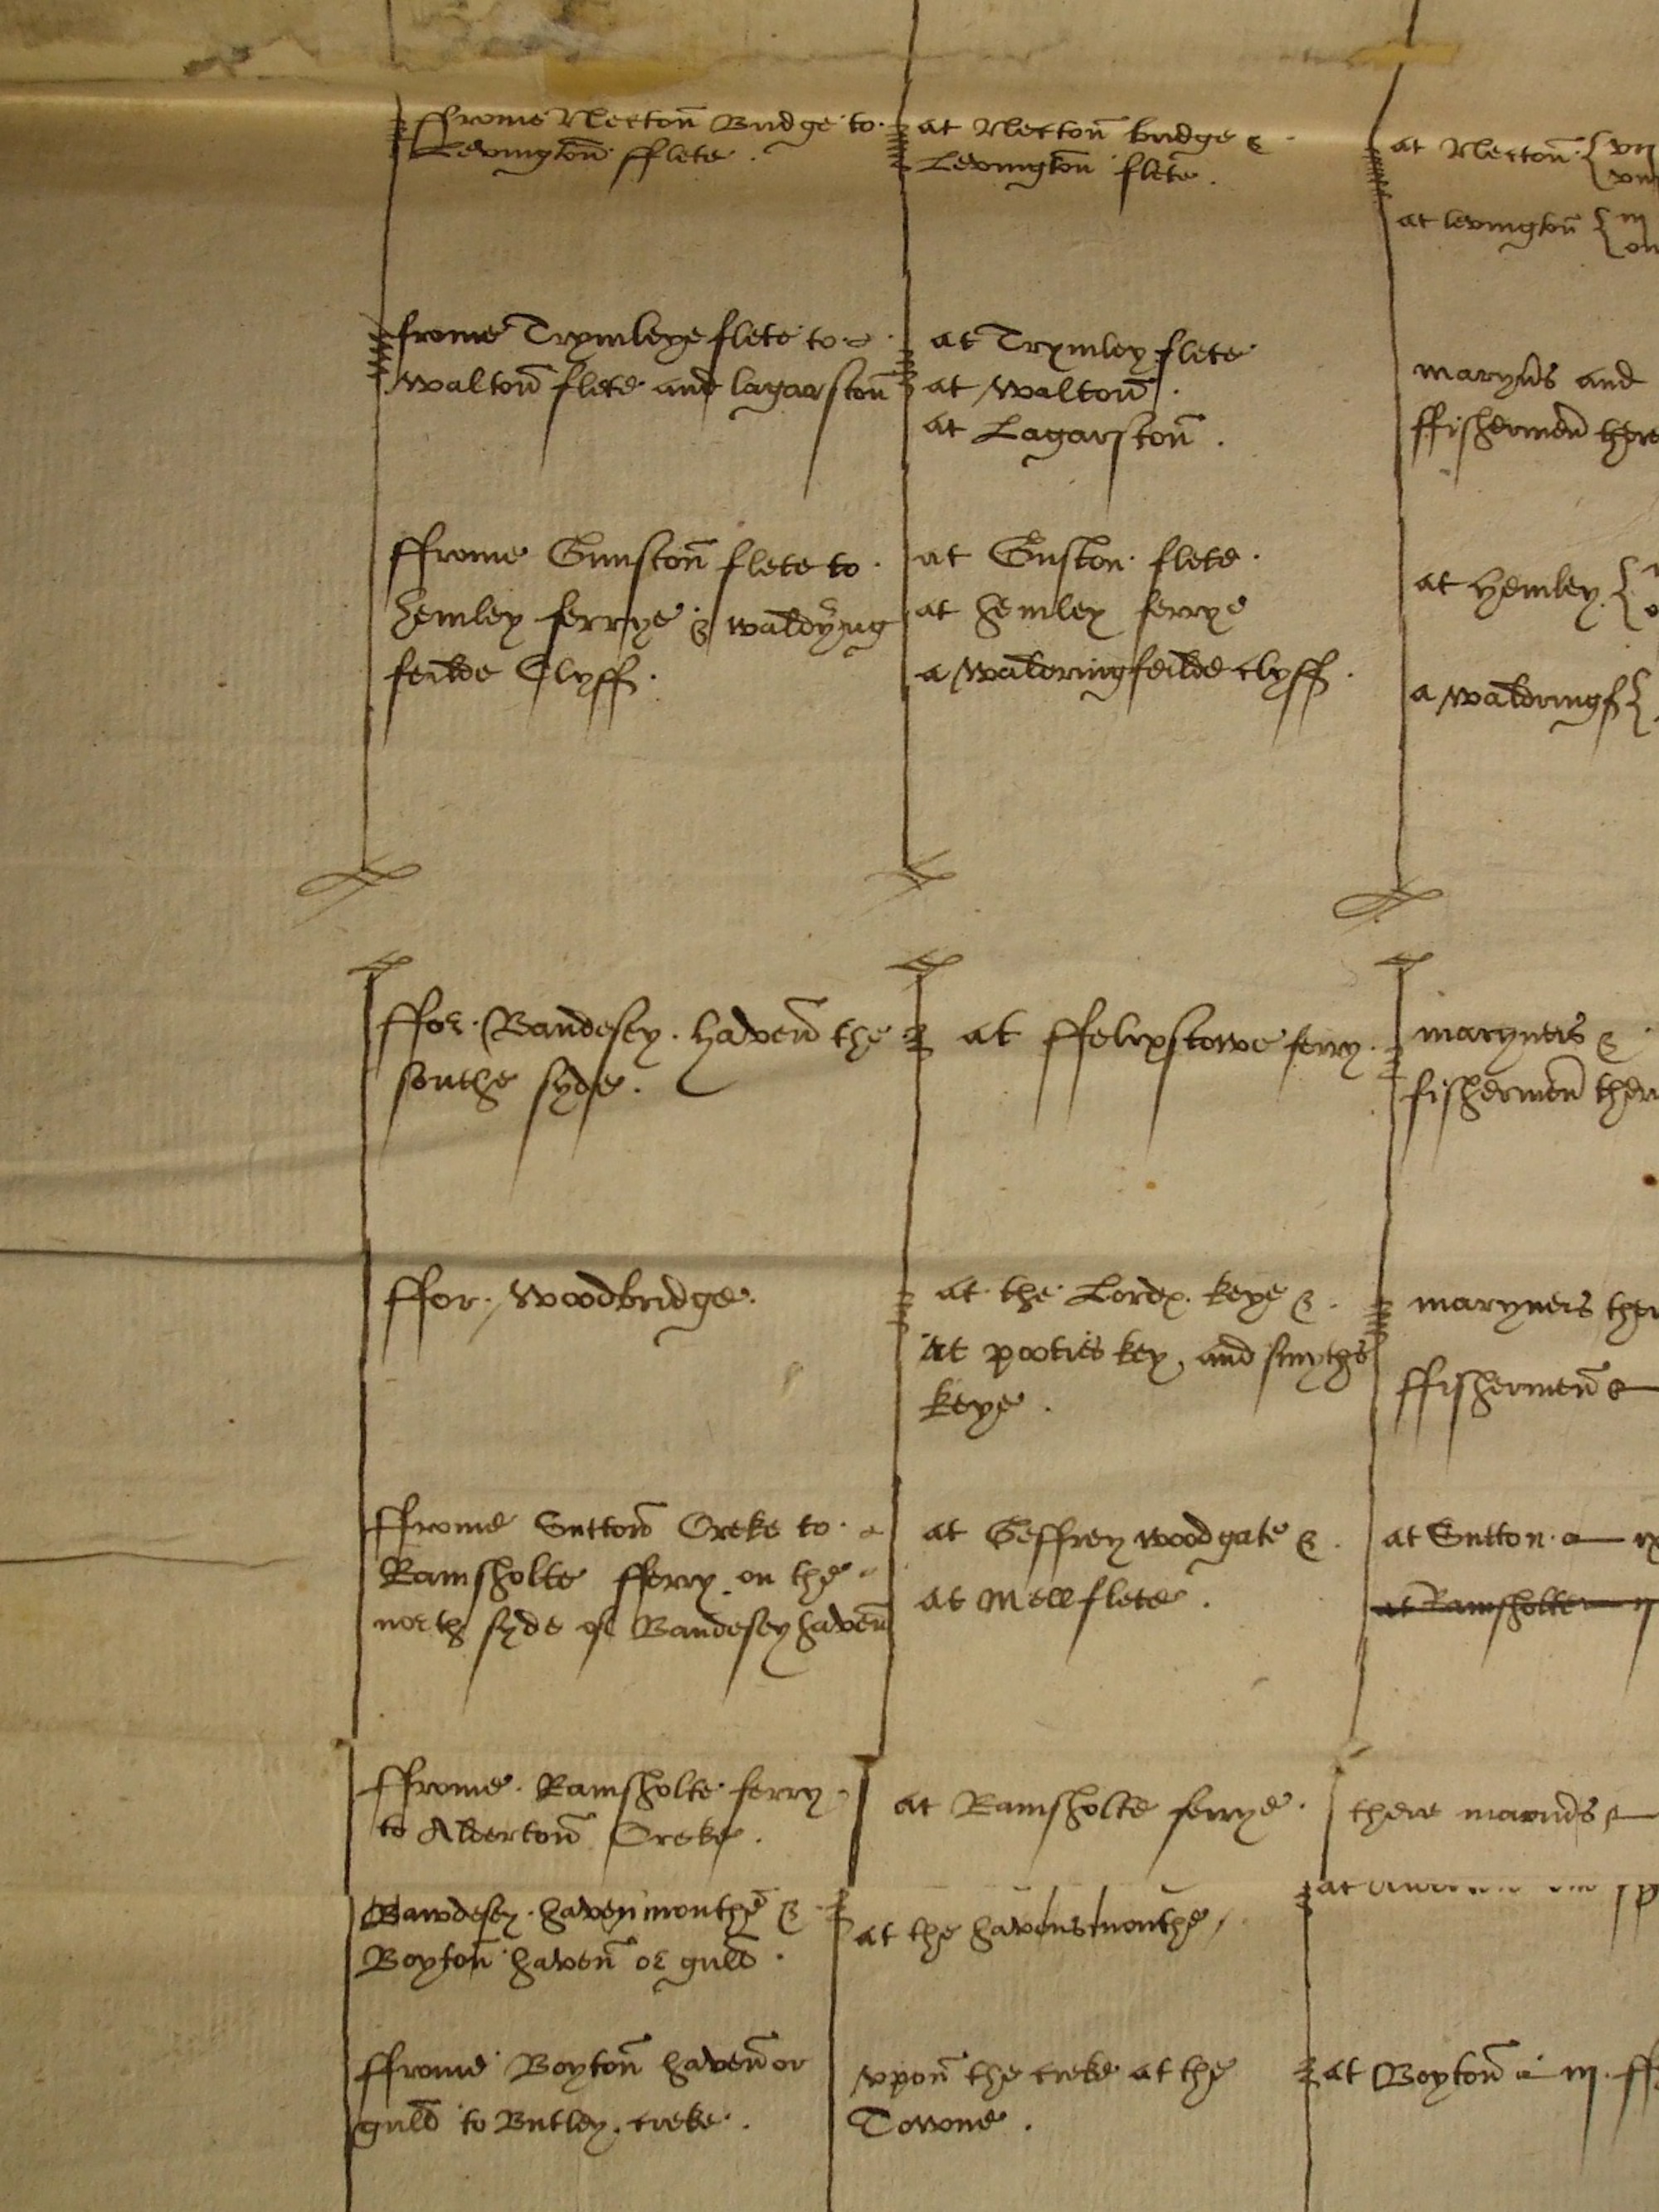 ffrome Nectoñ Bridge to
Levingtoñ fflete.
at Nectoñ bridge &
Levingtoñ flete.
at Nectoñ
at levingtoñ
frome Trymleye flete to
waltoñ flete and lagarstoñ
at Trymley flete
at waltoñ.
at Lagarstoñ.
maryñs and
ffishermeñ
ffrome Gunstoñ flete to
hemley ferrye & waldryng
feilde Clyff.
at Guston flete.
at hemley ferrye
a waldringfeilde clyff.
at hemley
a waldringf
ffor Baudesey haveñ the
southe syde.
at ffelixstowe ferry.
maryners &
fishermeñ
ffor woodbridge.
at the Lordes keye &
at pooties key, and smyths
keye.
maryners
ffishermeñ
ffrome Suttoñ Creke to
Ramsholte fferry on the
north syde of Baudesey haveñ
at Geffrey woodgate &
at Mell flete.
at Sutton
at Ramsholte
ffrome Ramsholte ferry
to Aldertoñ Creke.
at Ramsholte ferrye.
there
Bawdesey haven mouthe &
Boytoñ haveñ or gull
at the havens mouthe
ffrome Boytoñ haveñ or
gull to Butley creke.
vpoñ the creke at the
Towne.
at Boytoñ iij